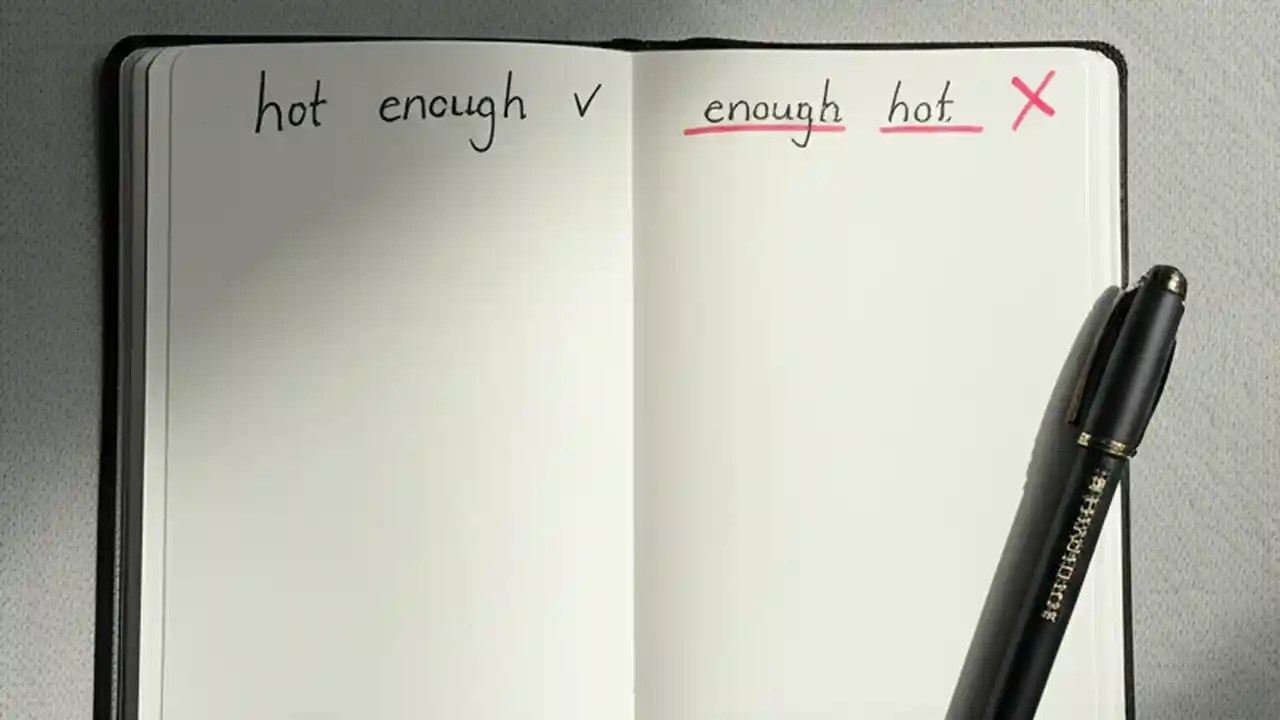 hot enough ✓
enough hot. ✗